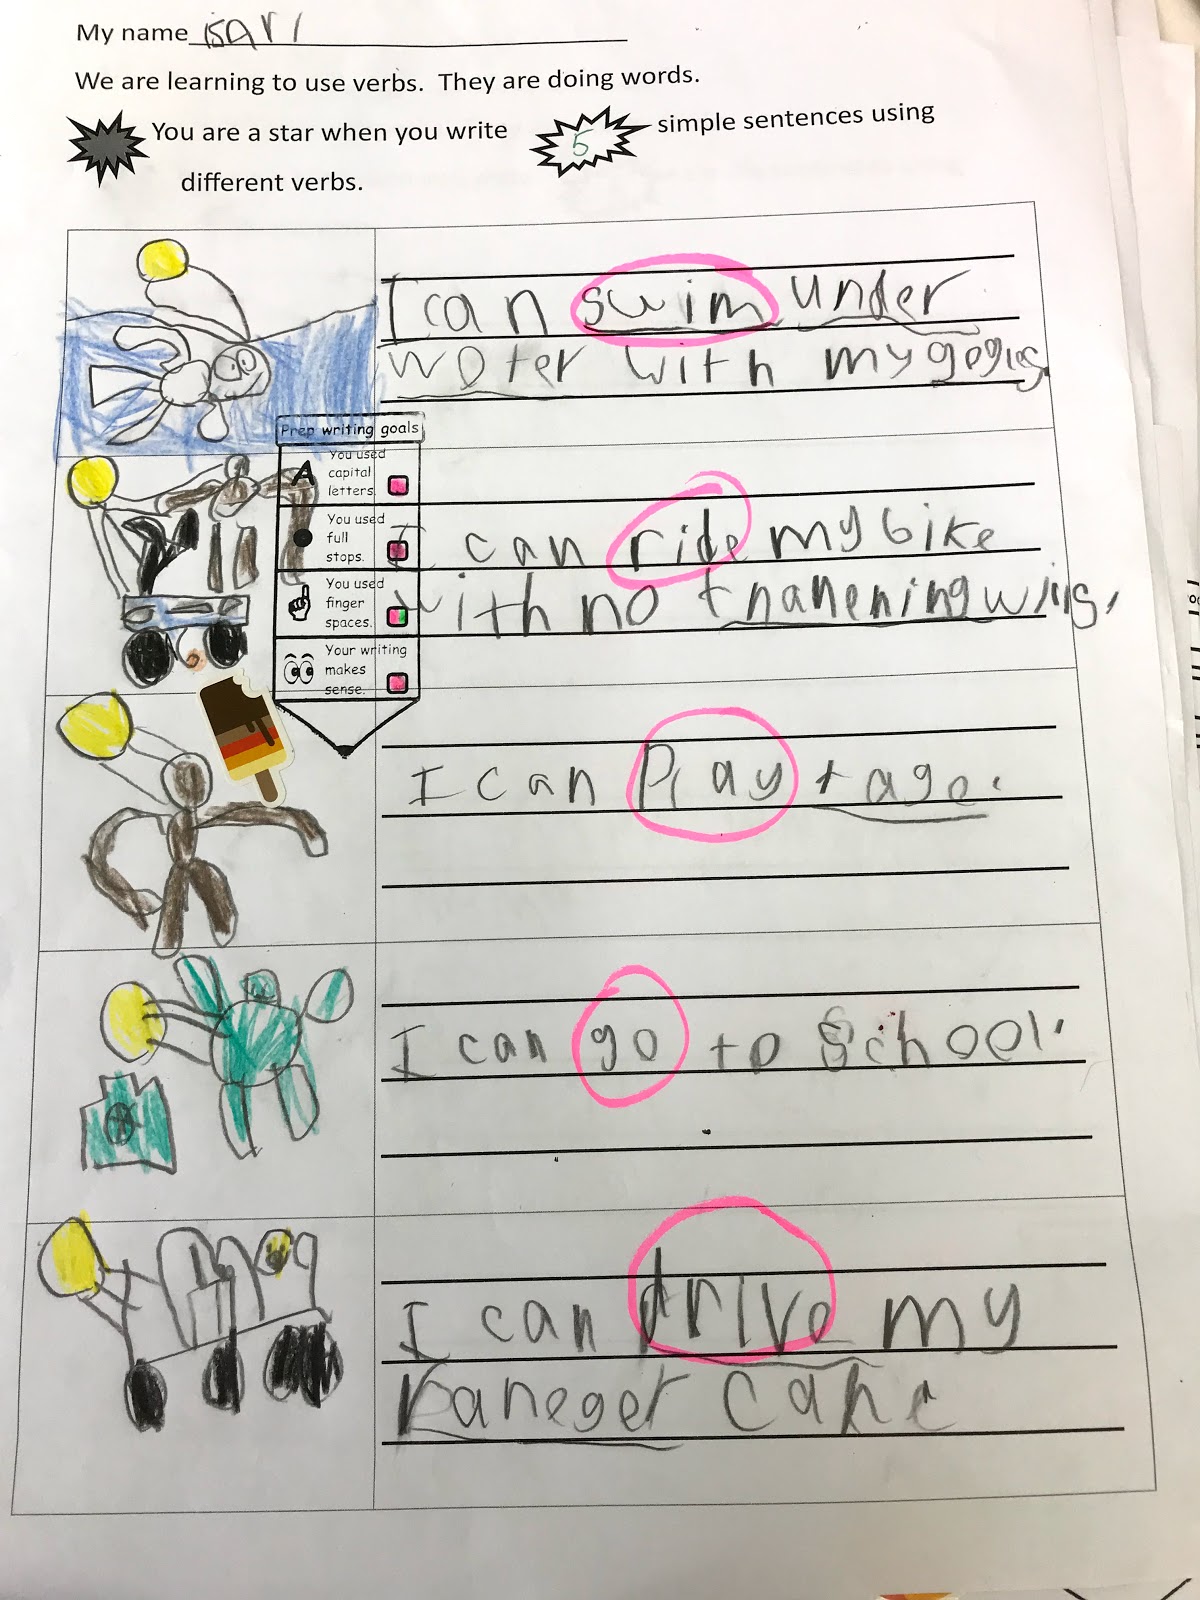 My name
We are learning to use verbs. They are doing words.
You are a star when you write 5 simple sentences using
different verbs.
I can swim under
water with my gogles.
Prep writing goals
A You used
capital
letters.
You used
full
stops.
You used
finger
spaces.
Your writing
makes
sense.
I can ride my bike
with no
I can Play tage.
I can go to School.
I can drive my